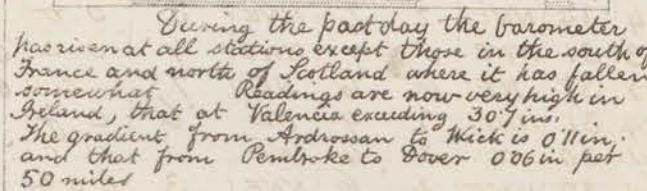 During the past day the barometer
has risen at all stations except those in the south of
France and north of Scotland where it has fallen
somewhat Readings are now very high in
Ireland, that at Valencia exceeding 30.7 ins.
The gradient from Ardrossan to Wick is 0.11 in.
and that from Pembroke to Dover 0.06 in per
50 miles